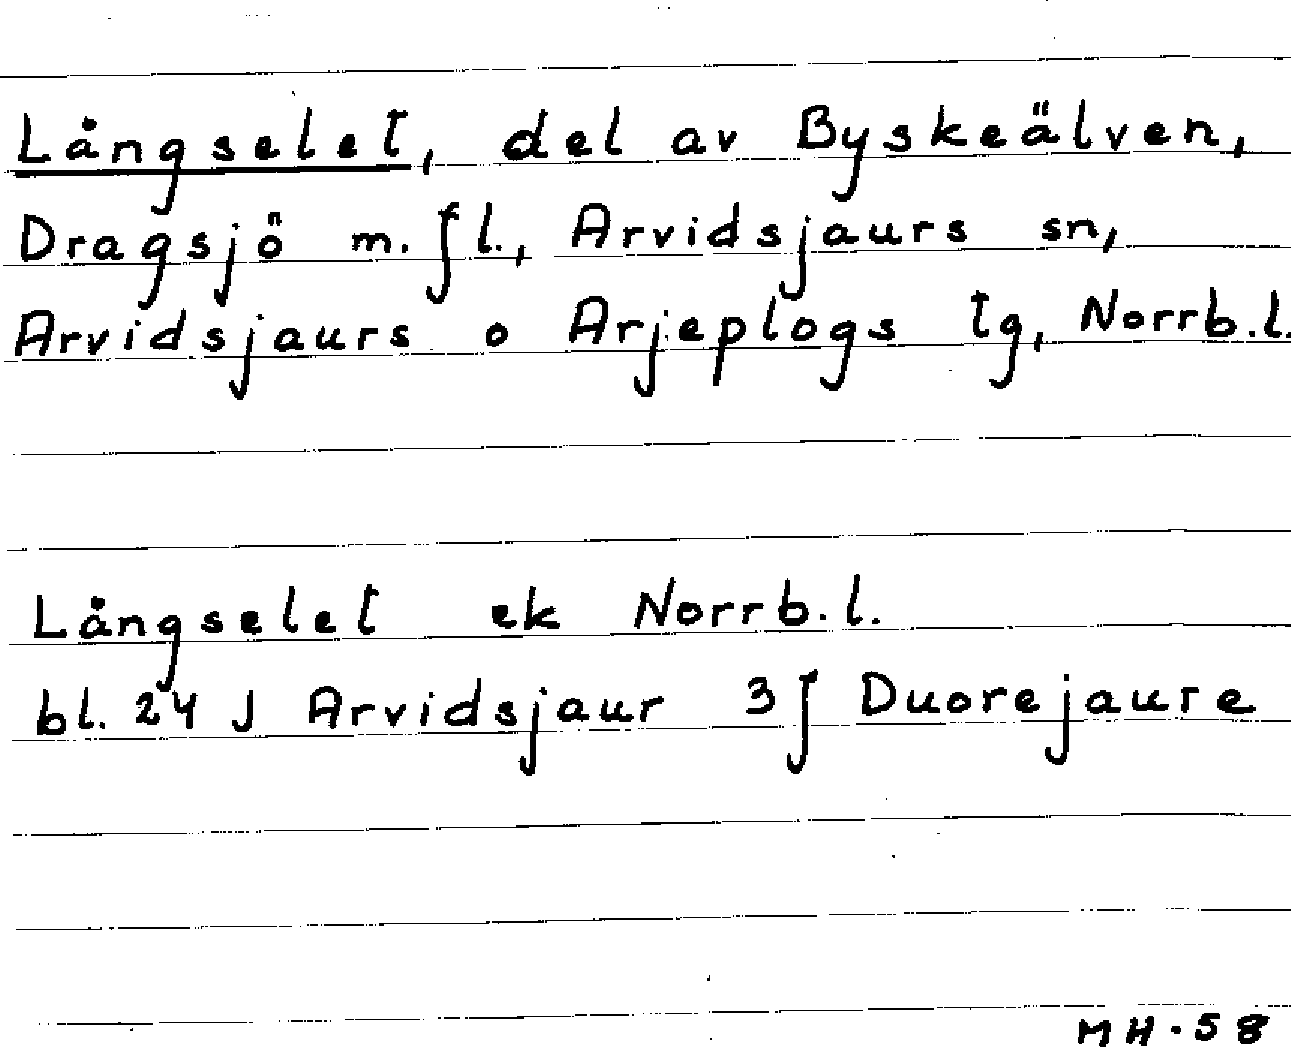 Långselet, del av Byskeälven,
Dragsjö m. fl., Arvidsjaurs sn,
Arvidsjaurs o Arjeplogs tg, Norrb.l.
Långselet ek Norrb.l.
bl. 24 J Arvidsjaur 3f Duorejaure
MH-58